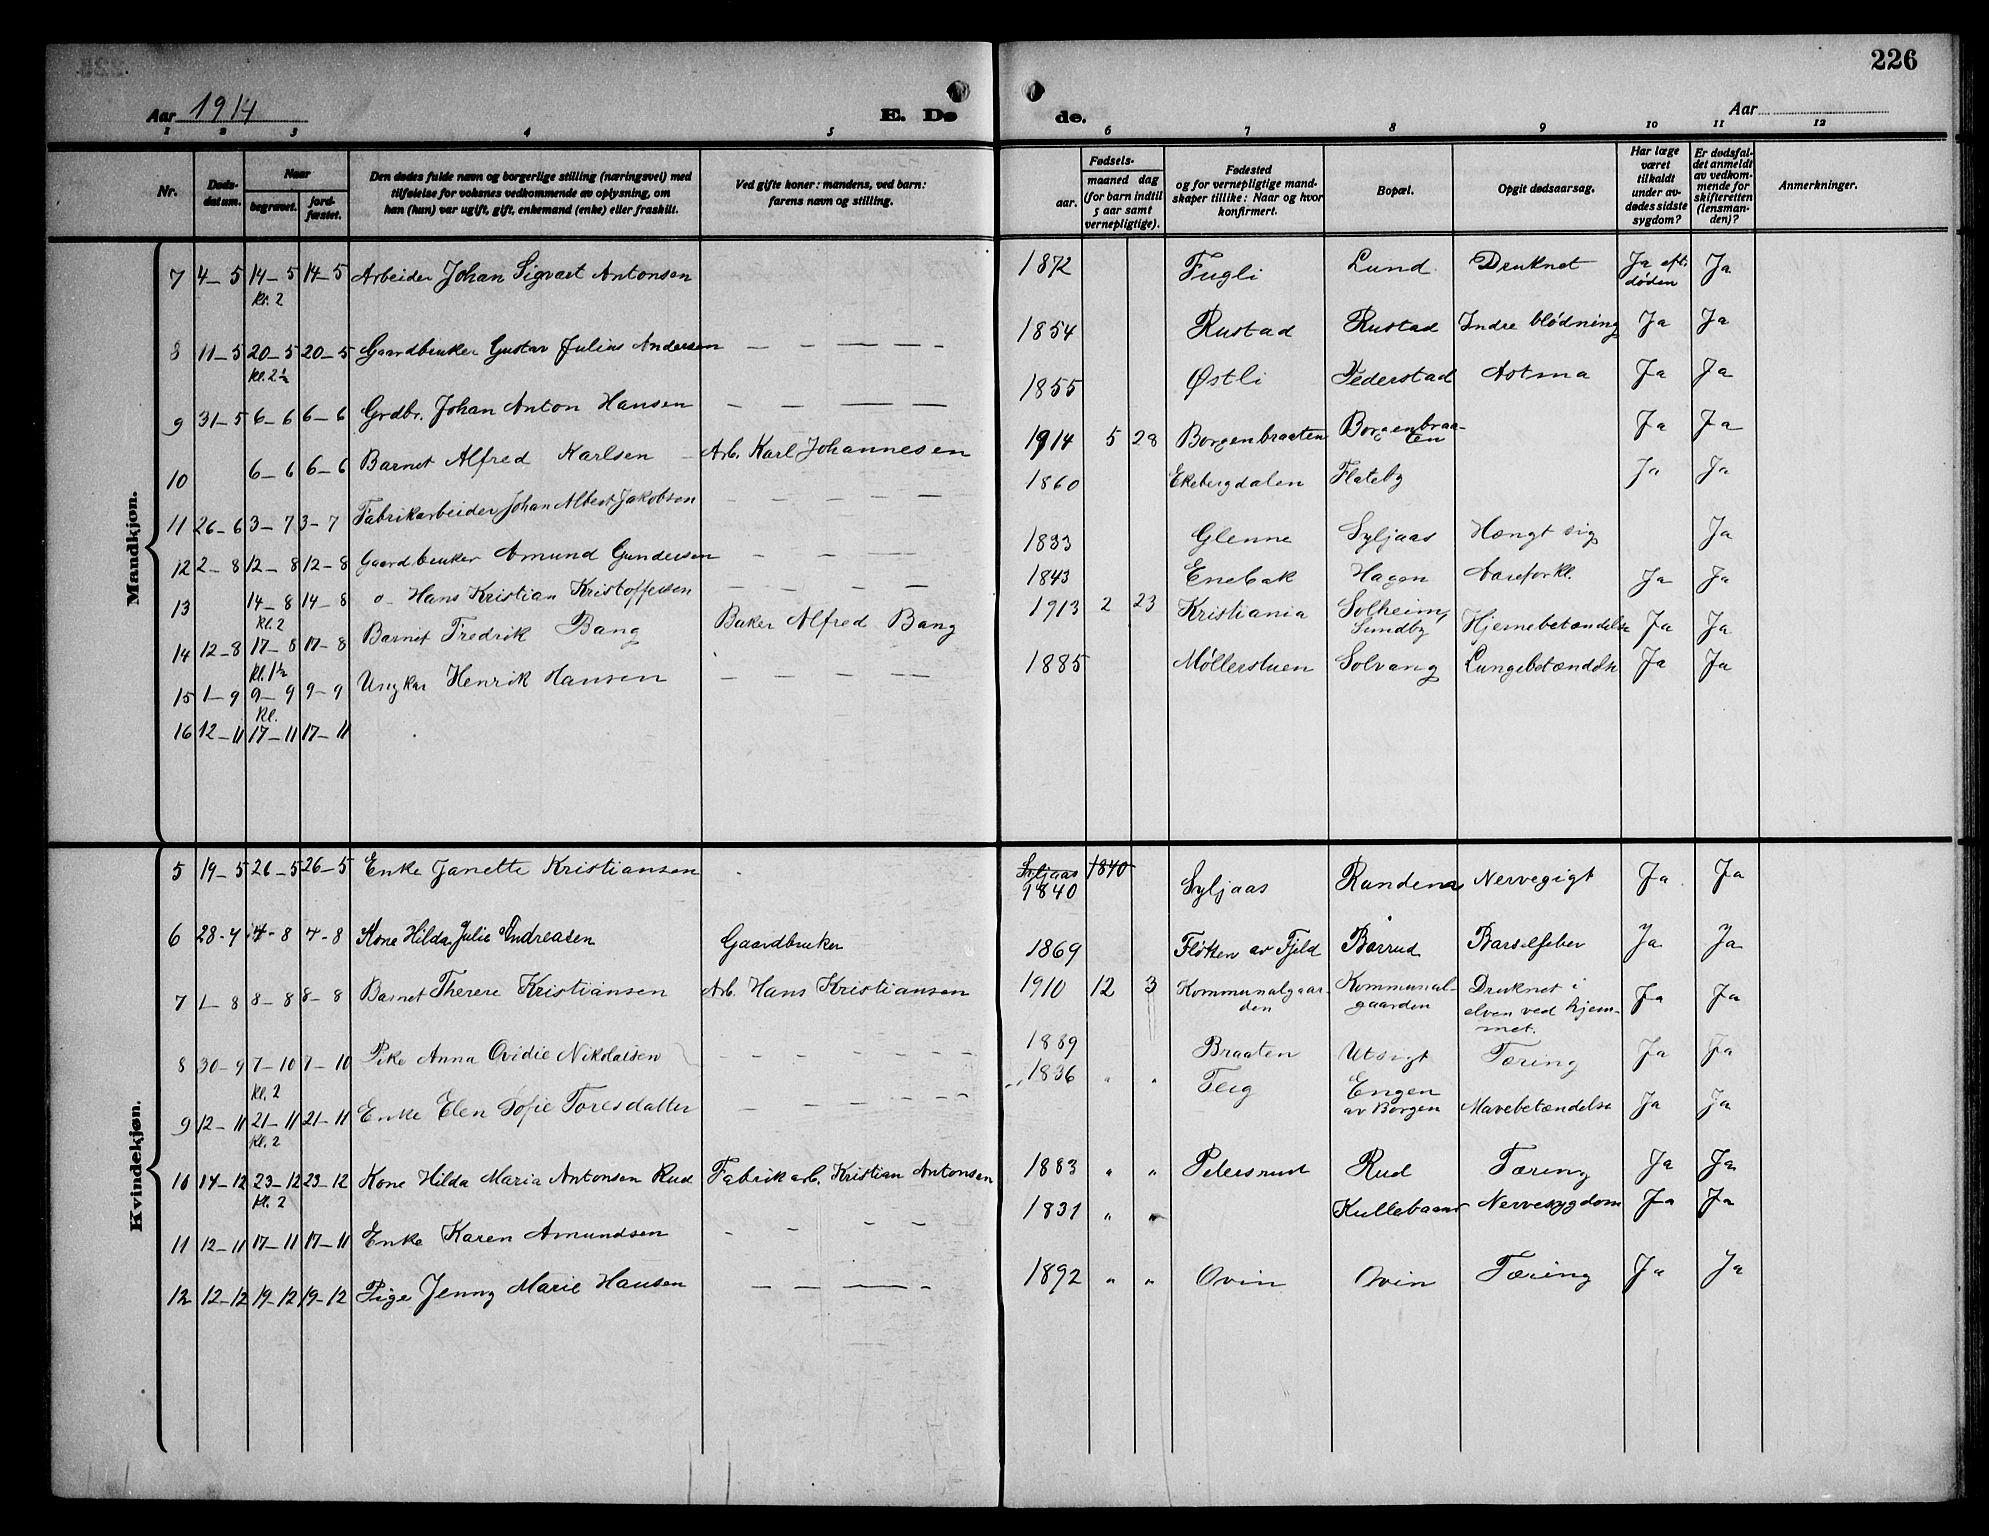 226
Aar 1914
E. Dø
de.
Aar
1 2 3 4 5 6 7 8 9 10 11 12
Nr.
Døds-
datum.
Naar
begravet.
jord-
fæstet.
Den dødes fulde navn og borgerlige stilling (næringsvei) med
tilføielse for voksnes vedkommende av oplysning, om
han (hun) var ugift, gift, enkemand (enke) eller fraskilt.
Ved gifte koner: mandens, ved barn:
farens navn og stilling.
Fødsels-
aar.
maaned dag
(for barn indtil
5 aar samt
vernepligtige).
Fødested
og for vernepligtige mand-
skaper tillike: Naar og hvor
konfirmert.
Bopæl.
Opgit dødsaarsag.
Har læge
været
tilkaldt
under av-
dødes sidste
sygdom?
Er dødsfal-
det anmeldt
av vedkom-
mende for
skifteretten
(lensman-
den)?
Anmerkninger.
Mandkjøn.
7 4-5 14-5 14-5 Arbeider Johan Sigvart Antonsen 1872 Fugli Lund Druknet Ja eft. Ja
kl. 2 døden
8 11-5 20-5 20-5 Gaardbruker Gustav Julius Andersen — — — — - 1854 Rustad Rustad Indre blødning Ja Ja
kl. 2½
9 31-5 6-6 6-6 Grdbr. Johan Anton Hansen — — — — 1855 Østli Vederstad Astma Ja Ja
10 6-6 6-6 Barnet Alfred Karlsen Arb. Karl Johannesen 1914 5 28 Borgenbraaten Borgenbraa-
ten Ja Ja
11 26-6 3-7 3-7 Fabrikarbeider Johan Albert Jakobsen - — — — 1860 Ekebergdalen Flateby Ja Ja
12 2-8 12-8 12-8 Gaardbruker Amund Gundersen - — — — 1833 Glenne Syljaas Hængt sig Ja
13 14-8 14-8 o- Hans Kristian Kristoffersen — — — 1843 Enebak Hagen Aareforkl. Ja Ja
kl. 2
14 12-8 17-8 17-8 Barnet Fredrik Bang Baker Alfred Bang 1913 2 23 Kristiania Solheim, Hjernebetændelse Ja Ja
kl. 1½ Sundby
15 1-9 9-9 9-9 Ungkar Henrik Hansen — — — — 1885 Møllerstuen Solvang Lungebetændelse Ja Ja
kl.
16 12-11 17-11 17-11
Kvindekjøn.
5 19-5 26-5 26-5 Enke Janette Kristiansen Syljaas 1840
1840 Syljaas Randem Nervegigt Ja Ja
6 28-7 4-8 4-8 Kone Hilda Julie Andreasen Gaardbruker 1869 Fløtten av Fjeld Børrud Barselfeber Ja Ja
7 1-8 8-8 8-8 Barnet Therese Kristiansen Arb. Hans Kristiansen 1910 12 3 Kommunalgaar- Kommunal- Druknet i Ja Ja
den gaarden elven ved hjem-
met.
8 30-9 7-10 7-10 Pike Anna Ovidie Nikolaisen - - — — — — 1889 Braaten Utsigt Tæring Ja Ja
kl. 2
9 12-11 21-11 21-11 Enke Elen Sofie Toresdatter — — — — — 1836 " " Teig Engen Mavebetændelse Ja Ja
kl. 2 av Borgen
10 14-12 23-12 23-12 Kone Hilda Maria Antonsen Rud Fabrikarb. Kristian Antonsen 1883 " " Petersrud Rud Tæring Ja Ja
kl. 2
11 12-11 17-11 17-11 Enke Karen Amundsen - — — — 1831 " " Nervesygdom Ja Ja
12 12-12 19-12 19-12 Pige Jenny Marie Hansen — — — — 1892 " " Ovin Ovin Tæring Ja Ja